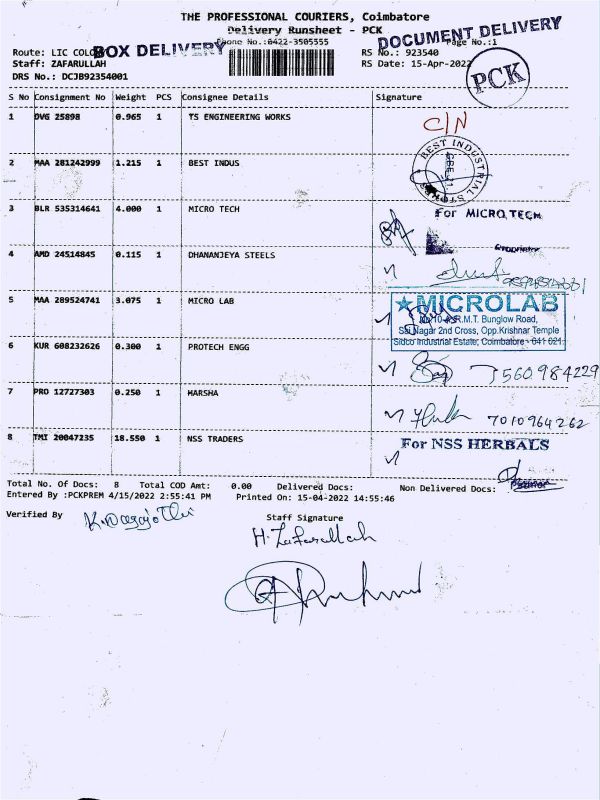 THE PROFESSIONAL COURIERS, Coimbatore
Delivery Runsheet - PCK
Phone No.:0422-3505555
Page No.:1
BOX DELIVERY
DOCUMENT DELIVERY
PCK
Route: LIC COLO
RS No.: 923540
Staff: ZAFARULLAH
RS Date: 15-Apr-2022
DRS No.: DCJB92354001
S No Consignment No Weight PCS Consignee Details Signature
1 DVG 25898 0.965 1 TS ENGINEERING WORKS
C/N
2 MAA 281242999 1.215 1 BEST INDUS
BEST INDUSTRIAL STORES
3 BLR 535314641 4.000 1 MICRO TECH
For MICRO TECH
Proprietor
4 AMD 24514845 0.115 1 DHANANJEYA STEELS
5 MAA 289524741 3.075 1 MICRO LAB
MICROLAB
R.M.T. Bunglow Road,
Sai Nagar 2nd Cross, Opp.Krishnar Temple
Sidco Industrial Estate, Coimbatore - 641 021.
6 KUR 608232626 0.300 1 PROTECH ENGG
7560984229
7 PRO 12727303 0.250 1 HARSHA
7010964262
8 TMI 20047235 18.550 1 NSS TRADERS
For NSS HERBALS
Total No. Of Docs: 8 Total COD Amt: 0.00 Delivered Docs: Non Delivered Docs:
Entered By :PCKPREM 4/15/2022 2:55:41 PM Printed On: 15-04-2022 14:55:46
Verified By
Staff Signature
H. Zafarullah